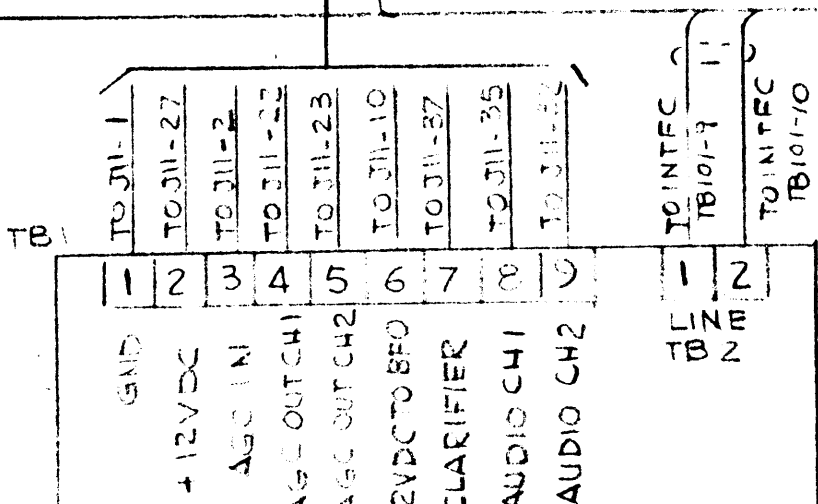 TO J11-1
TO J11-27
TO J11-2
TO J11-22
TO J11-23
TO J11-10
TO J11-37
TO J11-35
TO J11-
TO INTFC
TB101-9
TO INTFC
TB101-10
TB1
1 2 3 4 5 6 7 8 9
1 2
GND
+12VDC
AGC IN
AGC OUT CH1
AGC OUT CH2
2VDC TO BFO
CLARIFIER
AUDIO CH1
AUDIO CH2
LINE
TB 2